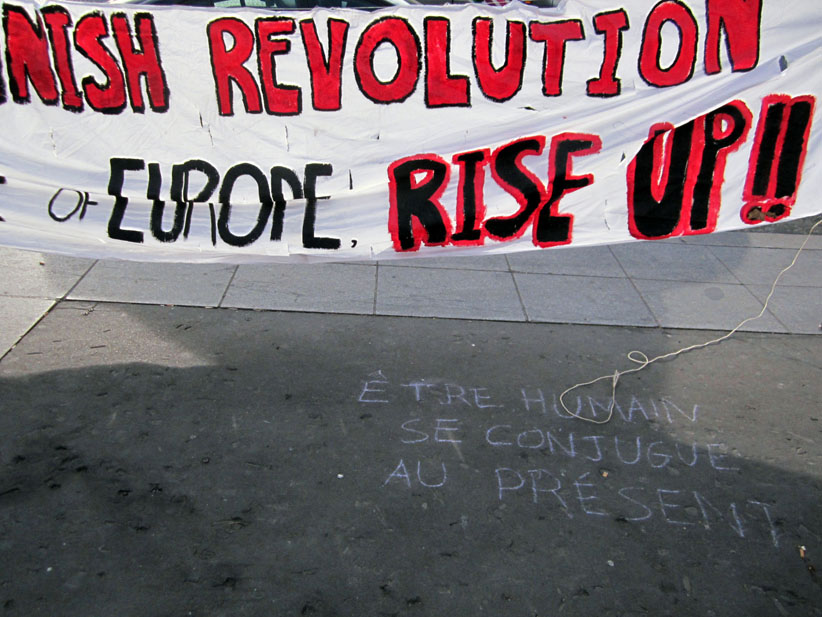 NISH REVOLUTION
OF EUROPE, RISE UP!!
ÊTRE HUMAIN
SE CONJUGUE
AU PRÉSENT